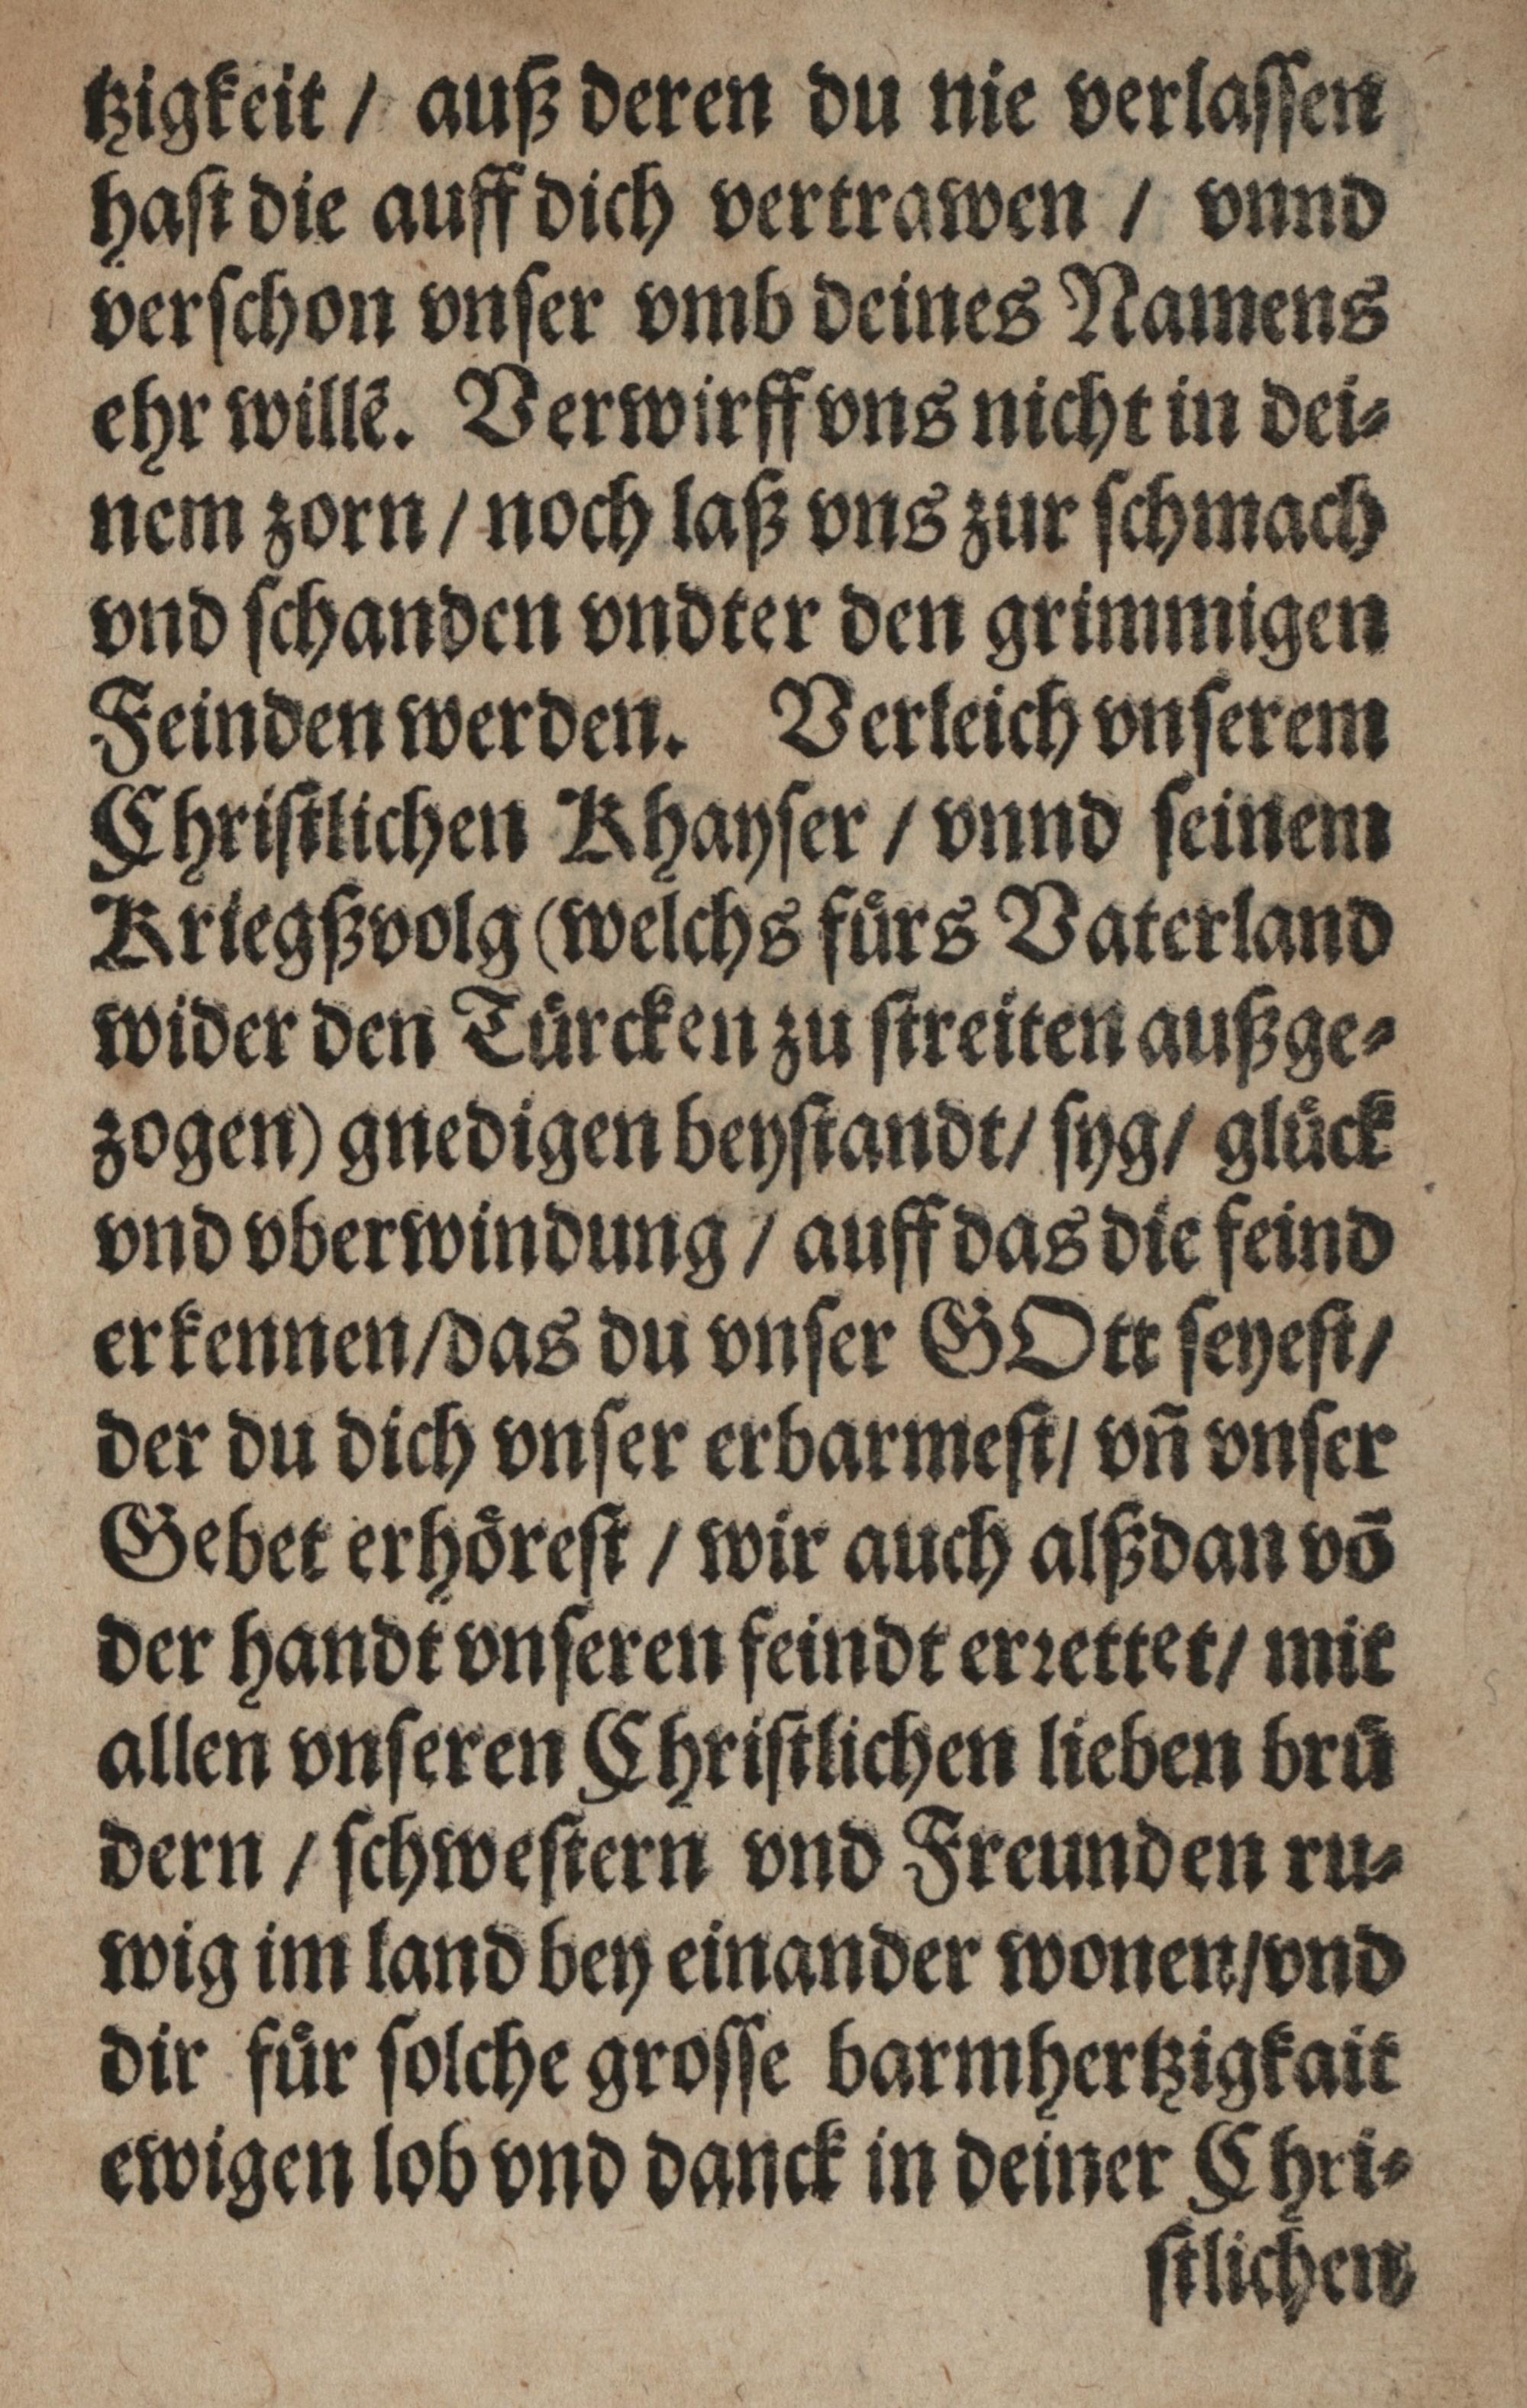 tzigkeit / auß deren du nie verlassen
hast die auff dich vertrawen / vnnd
verschon vnser vmb deines Namens
ehr willẽ. Verwirff vns nicht in dei⸗
nem zorn / noch laß vns zur schmach
vnd schanden vndter den grimmigen
Feinden werden. Verleich vnserem
Christlichen Khayser / vnnd seinem
Kriegßvolg (welchs fuͤrs Vaterland
wider den Tuͤrcken zu streiten außge⸗
zogen) gnedigen beystandt / syg / gluͤck
vnd vberwindung / auff das die feind
erkennen / das du vnser GOtt seyest /
der du dich vnser erbarmest / vñ vnser
Gebet erhoͤrest / wir auch alßdan võ
der handt vnseren feindt erꝛettet / mit
allen vnseren Christlichen lieben bruͤ
dern / schwestern vnd Freunden ru⸗
wig im land bey einander wonen / vnd
dir fuͤr solche grosse barmhertzigkait
ewigen lob vnd danck in deiner Chri⸗
stlichen